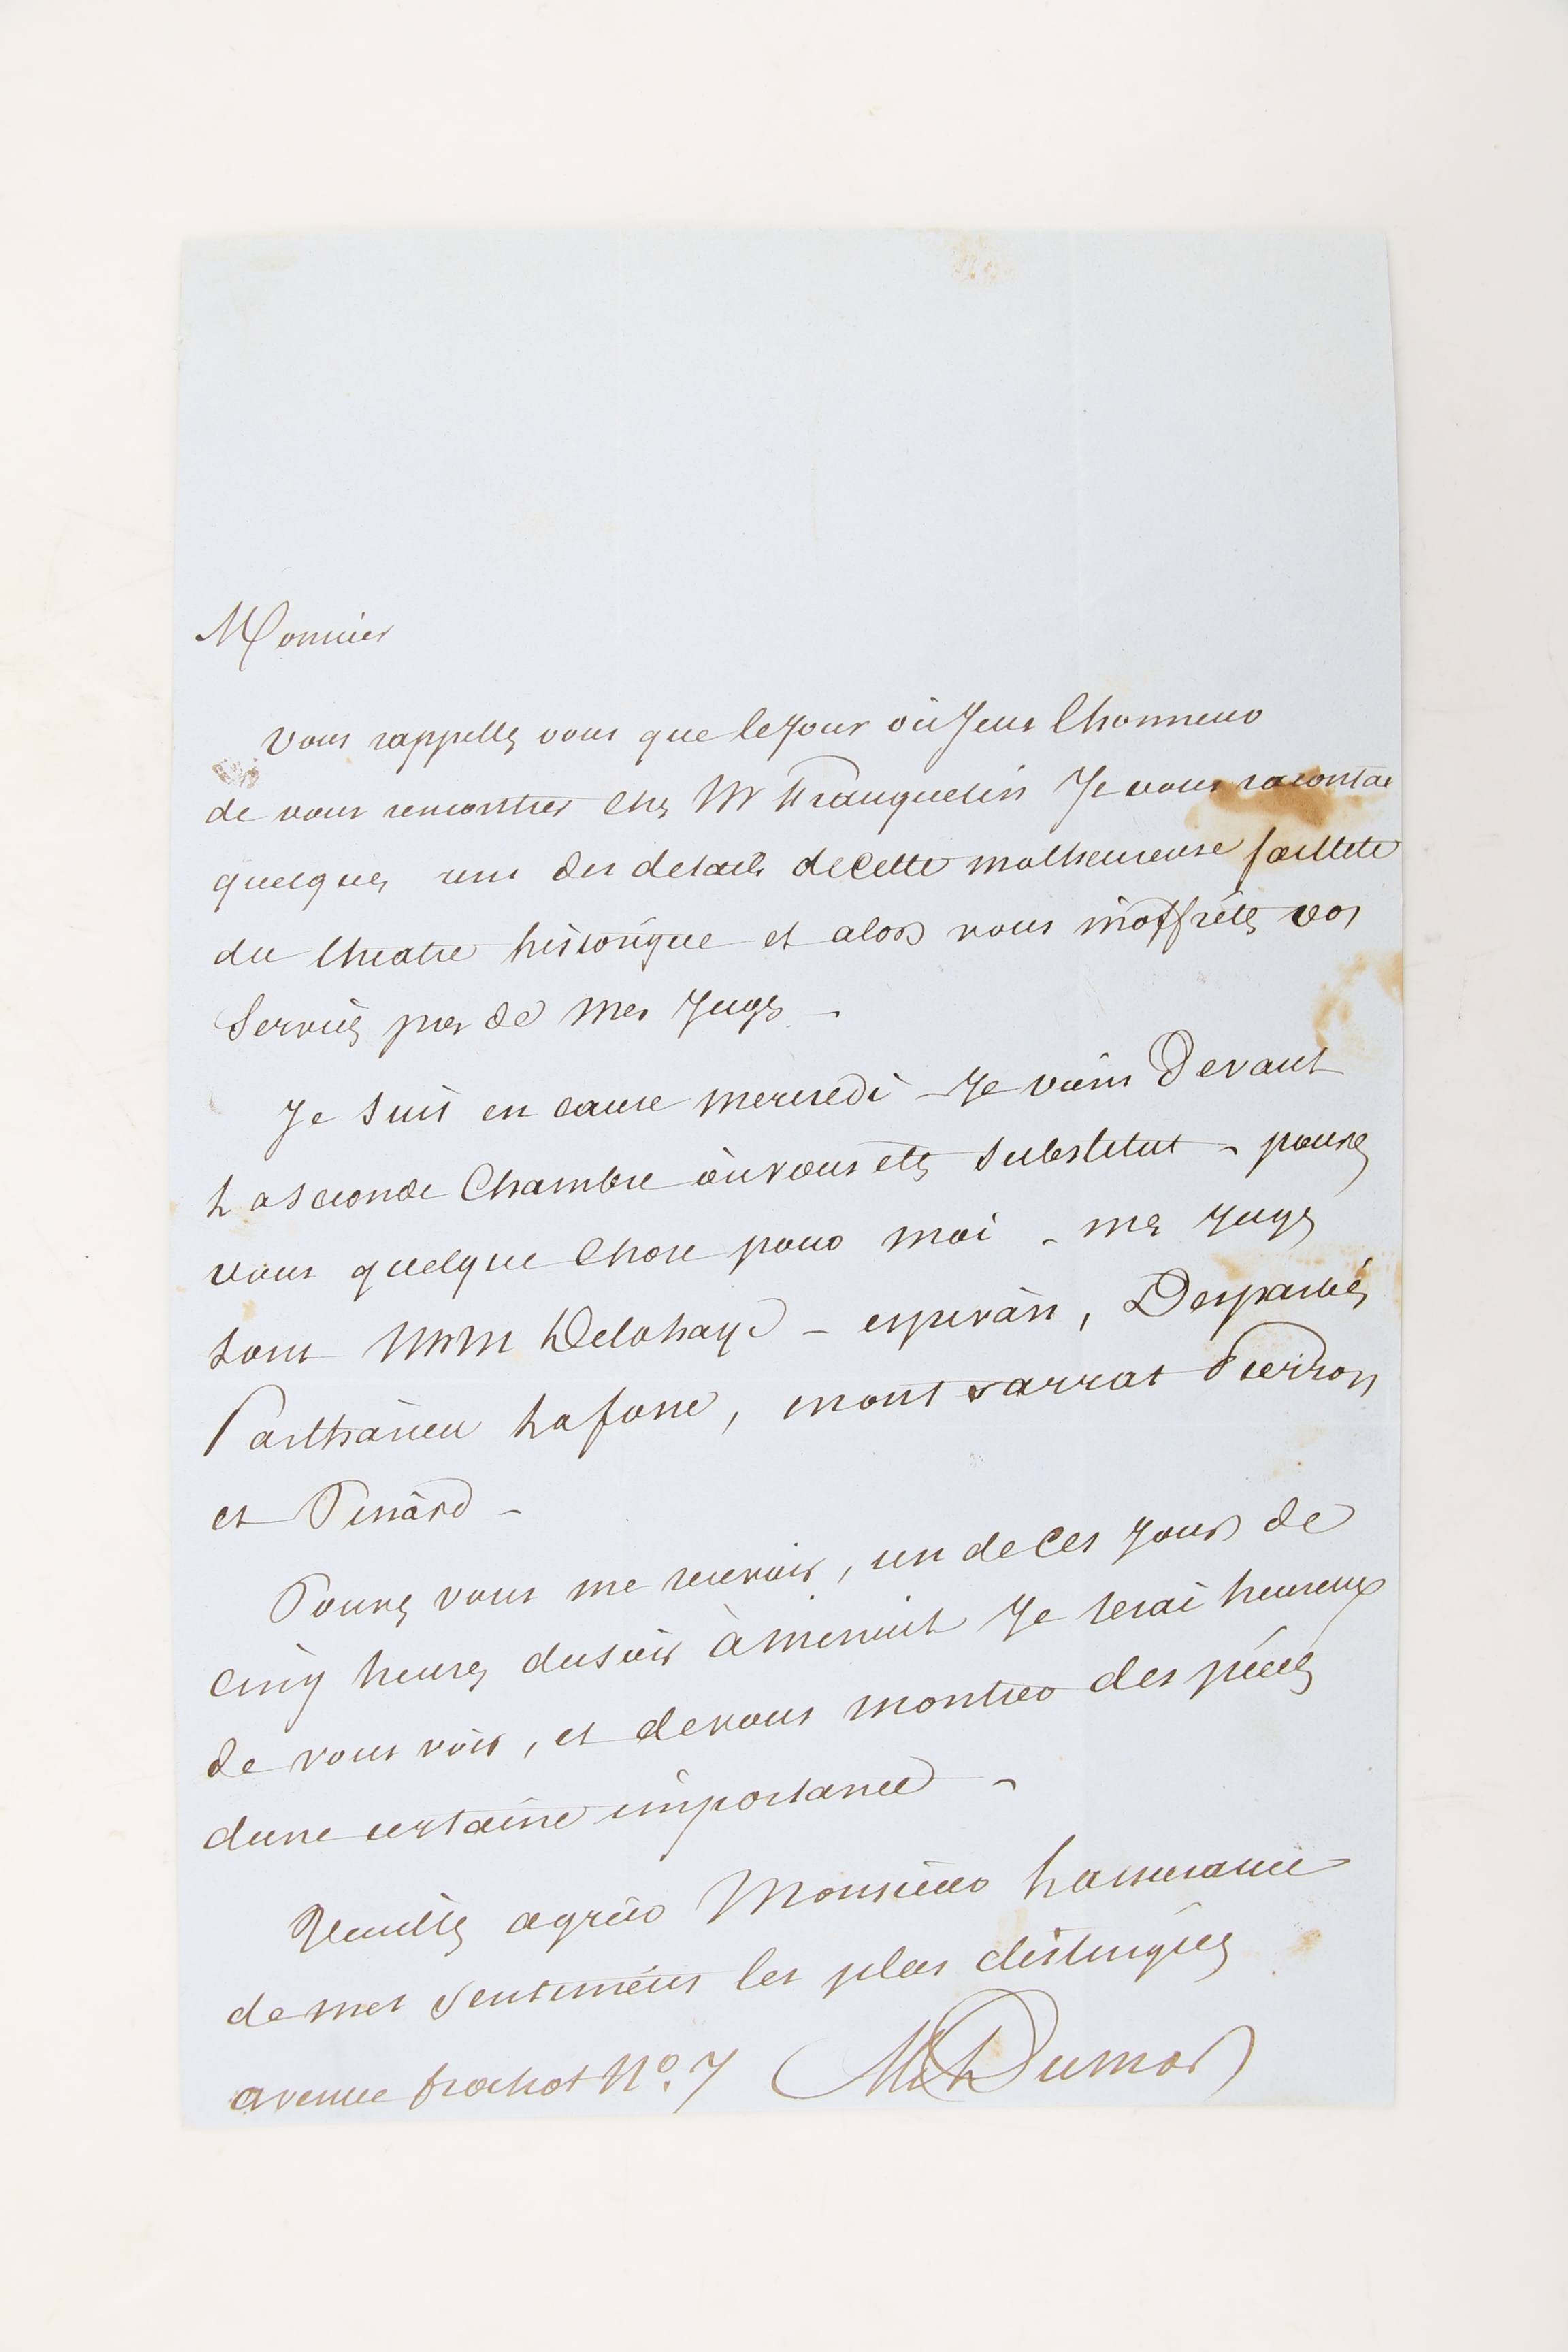 Monsieur
Vous rappellez vous que le jour où j'eus l'honneur
de vous rencontrer chez Mr Franquelin Je vous racontai
quelques uns des details de cette malheureuse faillite
du theatre historique et alors vous m'offrites vos
Services pres de mes Juges –
Je suis en cause mercredi – Je viens Devant
La seconde Chambre où vous etes substitut – pouvez
vous quelque chose pour moi – mes Juges
sont MMM Delahaye – esperan, Desparbés
Partharieu Lafosse, montsarrat Pierron
et Pinard –
Pouvez vous me recevoir, un de ces jours de
cinq heures du soir à minuit Je serai heureux
de vous voir, et de vous montrer des piéces
dune certaine importance –
Veuillez agréer Monsieur Lassurance
de mes sentiments les plus distingués
avenue frochot No. 7 Dumas